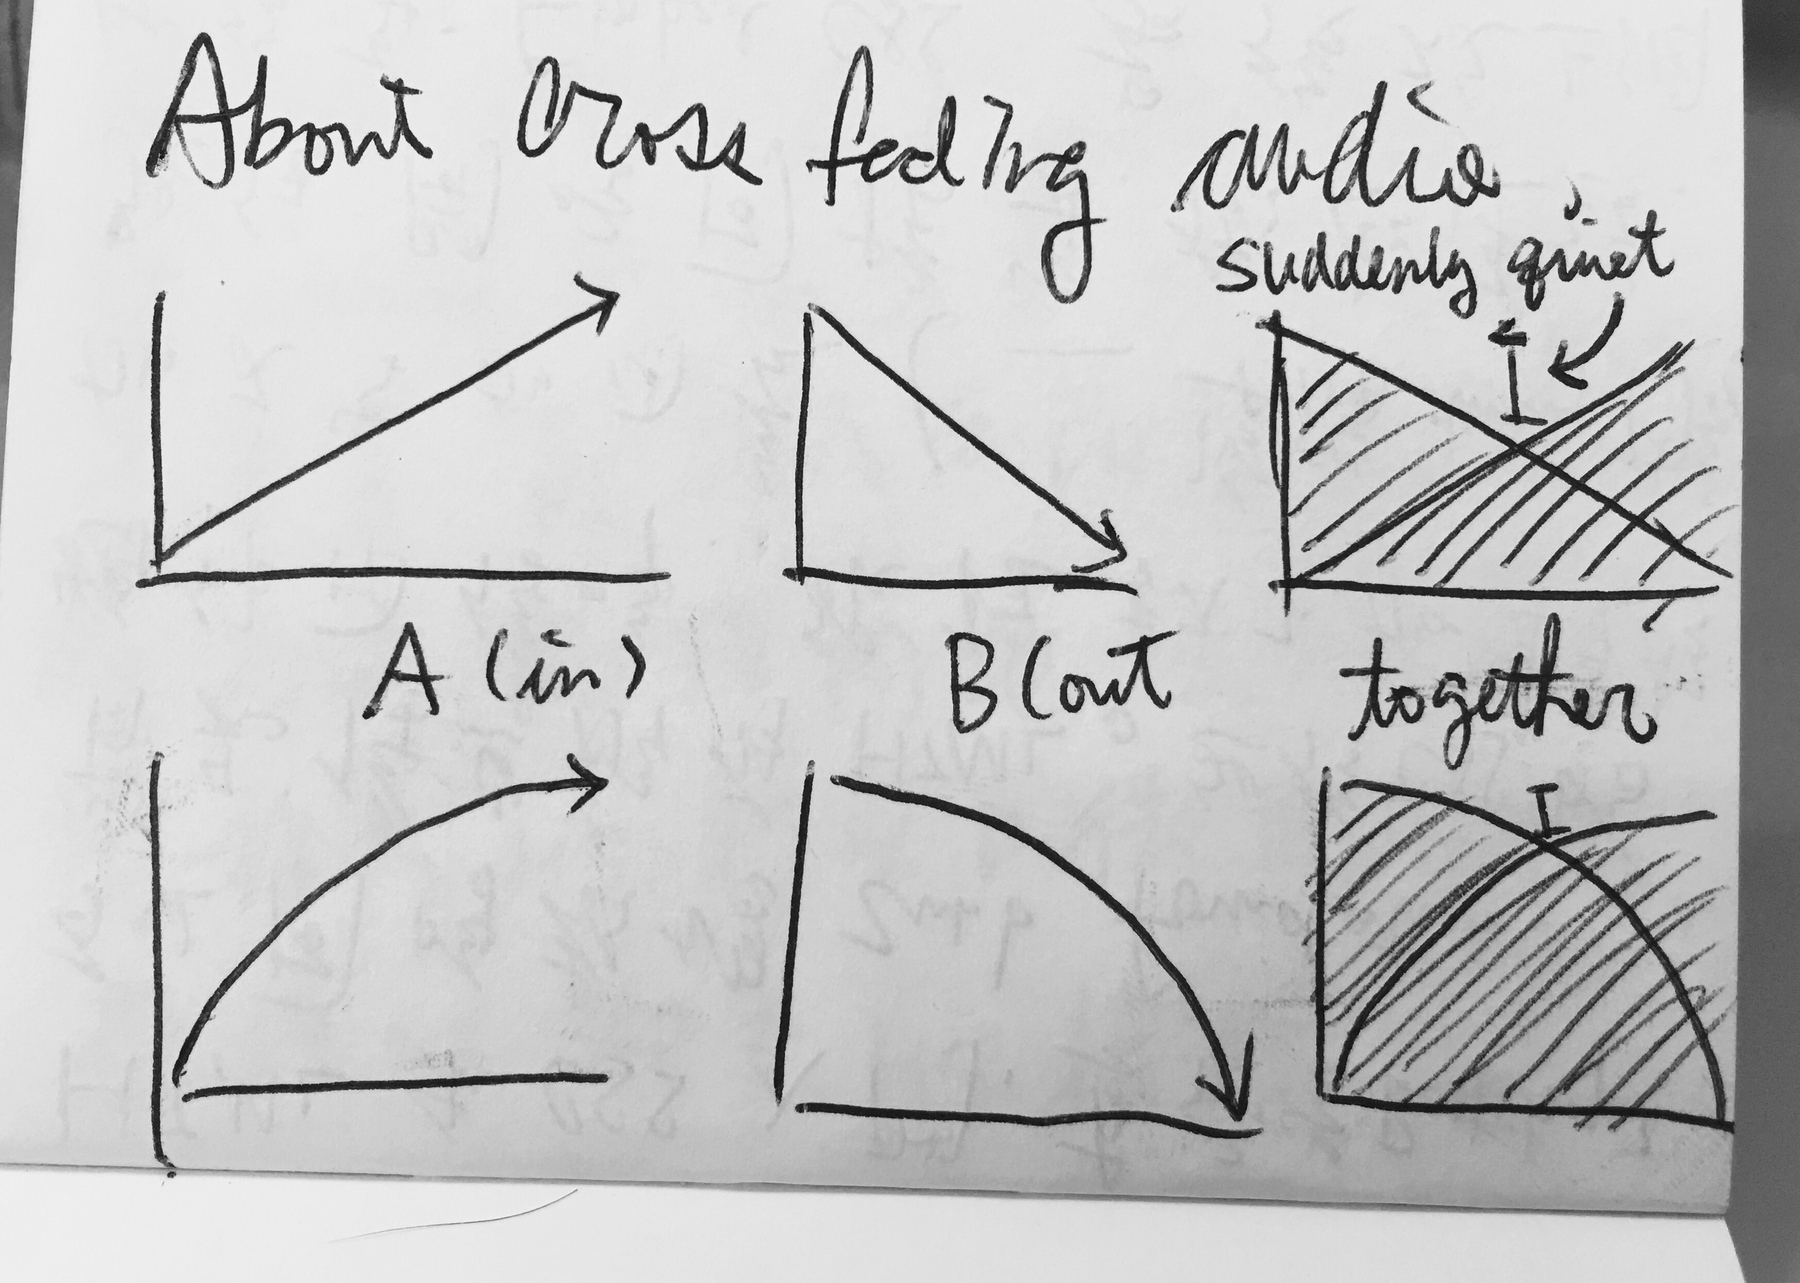 About cross fading audio,
suddenly quiet
A (in)
B (out
together